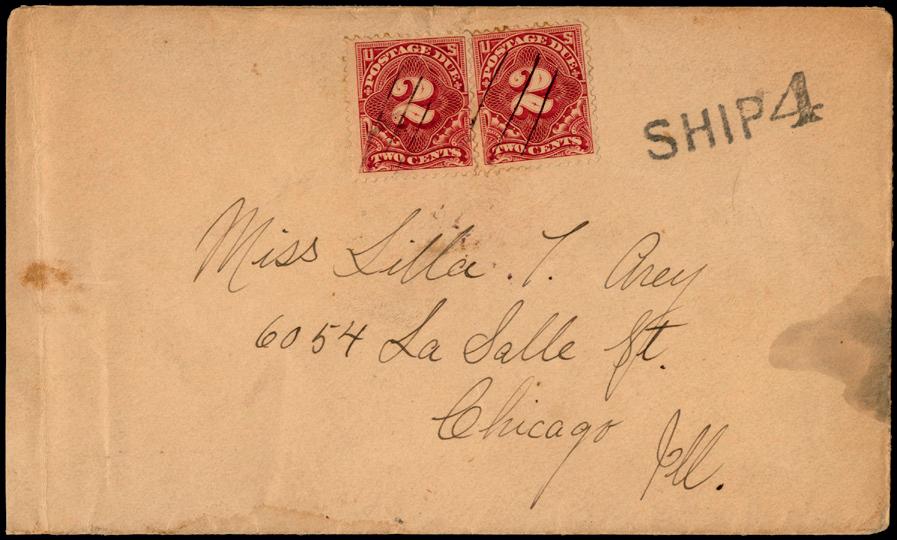 U S
POSTAGE DUE
2
TWO CENTS
U S
POSTAGE DUE
2
TWO CENTS
SHIP 4
Miss Lilla T. Arey
6054 La Salle St.
Chicago
Ill.